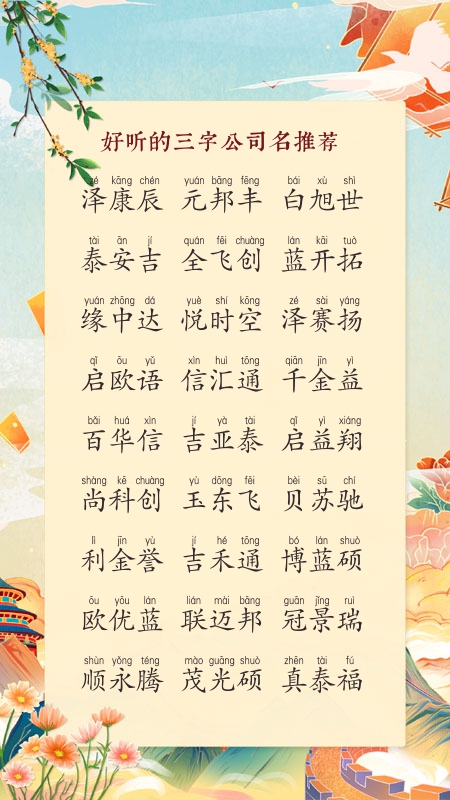 好听的三字公司名推荐
zé kāng chén yuán bāng fēng bái xù shì
泽康辰 元邦丰 白旭世
tài ān jí quán fēi chuàng lán kāi tuò
泰安吉 全飞创 蓝开拓
yuán zhōng dá yuè shí kōng zé sài yáng
缘中达 悦时空 泽赛扬
qǐ ōu yǔ xìn huì tōng qiān jīn yì
启欧语 信汇通 千金益
bǎi huá xìn jí yà tài qǐ yì xiáng
百华信 吉亚泰 启益翔
shàng kē chuàng yù dōng fēi bèi sū chí
尚科创 玉东飞 贝苏驰
lì jīn yù jí hé tōng bó lán shuò
利金誉 吉禾通 博蓝硕
ōu yōu lán lián mài bāng guān jǐng ruì
欧优蓝 联迈邦 冠景瑞
shùn yǒng téng mào guāng shuò zhēn tài fú
顺永腾 茂光硕 真泰福